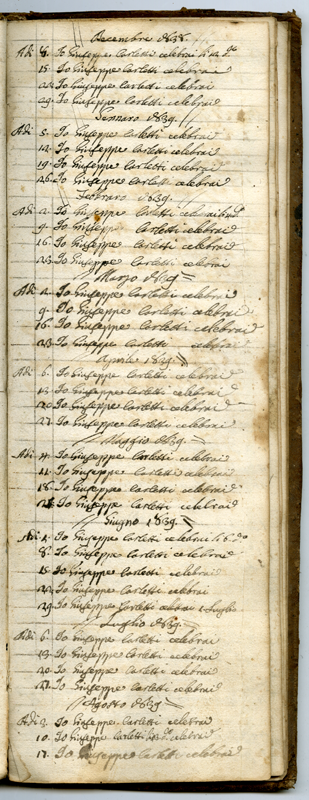 Decembre 1838.
Adi 8. Io Giuseppe Carletti celebrai
15. Io Giuseppe Carletti celebrai
22. Io Giuseppe Carletti celebrai
29. Io Giuseppe Carletti celebrai
Gennaro 1839.
Adi 5. Io Giuseppe Carletti celebrai
12. Io Giuseppe Carletti celebrai
19. Io Giuseppe Carletti celebrai
26. Io Giuseppe Carletti celebrai
Febraro 1839.
Adi 2. Io Giuseppe Carletti
9. Io Giuseppe Carletti celebrai
16. Io Giuseppe Carletti celebrai
23. Io Giuseppe Carletti celebrai
Marzo 1839
Adi 2. Io Giuseppe Carletti celebrai
9. Io Giuseppe Carletti celebrai
16. Io Giuseppe Carletti celebrai
23. Io Giuseppe Carletti celebrai
Aprile 1839.
Adi 6. Io Giuseppe Carletti celebrai
13. Io Giuseppe Carletti celebrai
20. Io Giuseppe Carletti celebrai
27. Io Giuseppe Carletti celebrai
Maggio 1839.
Adi 4. Io Giuseppe Carletti celebrai
11. Io Giuseppe Carletti celebrai
18. Io Giuseppe Carletti celebrai
Io Giuseppe Carletti celebrai
Giugno 1839.
Adi 1. Io Giuseppe Carletti celebrai
8. Io Giuseppe Carletti celebrai
15. Io Giuseppe Carletti celebrai
22. Io Giuseppe Carletti celebrai
29. Io Giuseppe Carletti Luglio
Luglio 1839.
Adi 6. Io Giuseppe Carletti celebrai
13. Io Giuseppe Carletti celebrai
20. Io Giuseppe Carletti celebrai
27. Io Giuseppe Carletti celebrai
Agosto 1839
Adi 3. Io Giuseppe Carletti celebrai
10. Io Giuseppe Carletti celebrai
17. Io Giuseppe Carletti celebrai